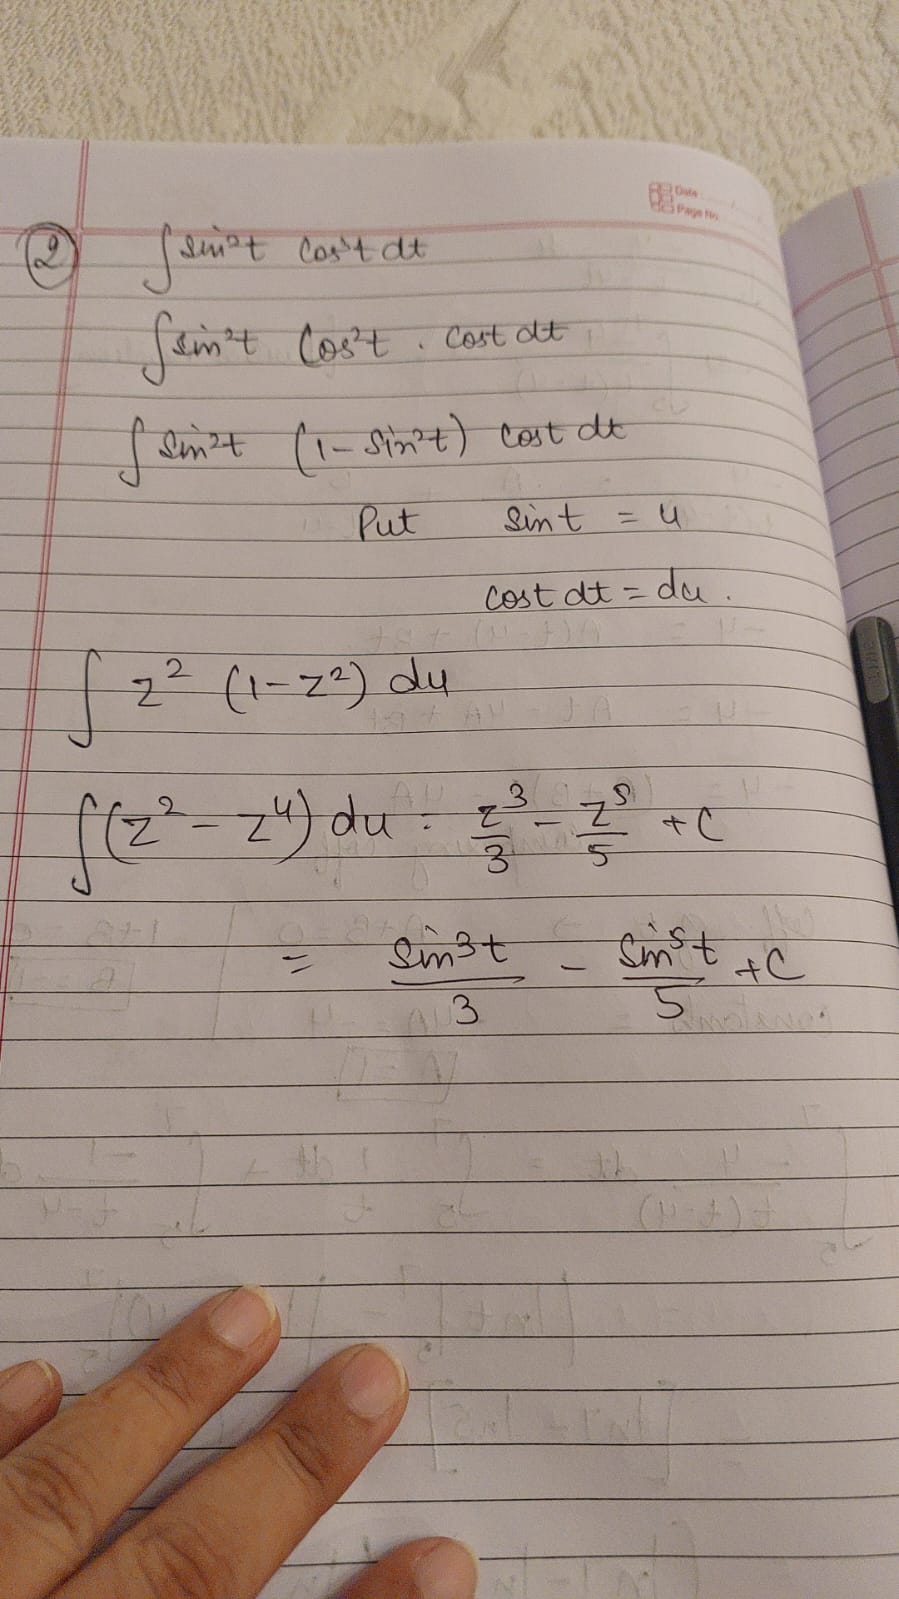 Date
Page No.
② ∫ sin²t cos³t dt
∫ sin²t cos²t . cost dt
∫ sin²t (1 - sin²t) cost dt
Put sin t = u
cost dt = du .
∫ z² (1-z²) du
∫ (z² - z⁴) du = z³/3 - z⁵/5 + C
= sin³t/3 - sin⁵t/5 + C